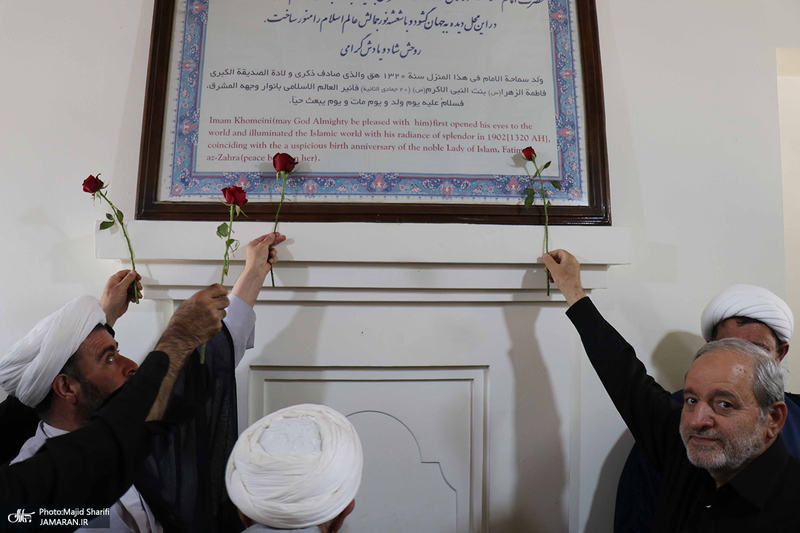 در این محل دیده به جهان گشود و با شعشعه نور جمالش عالم اسلام را منور ساخت.
روحش شاد و یادش گرامی
ولد سماحة الامام فی هذا المنزل سنة ١٣٢٠ هق والذی صادف ذکری و لادة الصدیقة الکبری
فاطمة الزهرا(س) بنت النبی الاکرم(ص) (٢٠ جمادی الثانیة) فانیر العالم الاسلامی بانوار وجهه المشرق،
فسلام علیه یوم ولد و یوم مات و یوم یبعث حیاً.
Imam Khomeini(may God Almighty be pleased with him)first opened his eyes to the
world and illuminated the Islamic world with his radiance of splendor in 1902[1320 AH],
coinciding with the a uspicious birth anniversary of the noble Lady of Islam, Fatim
az-Zahra(peace her).
Photo:Majid Sharifi
JAMARAN.IR